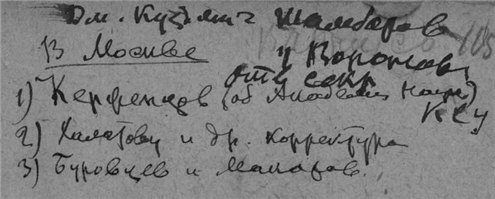 Дм. Кузьмич Шамбаров
В Москве у Воронов
отв секр
1) Керженцов (об Академии Наук)
2) Халатову и др. корректура
3) Буровцев и Макаров